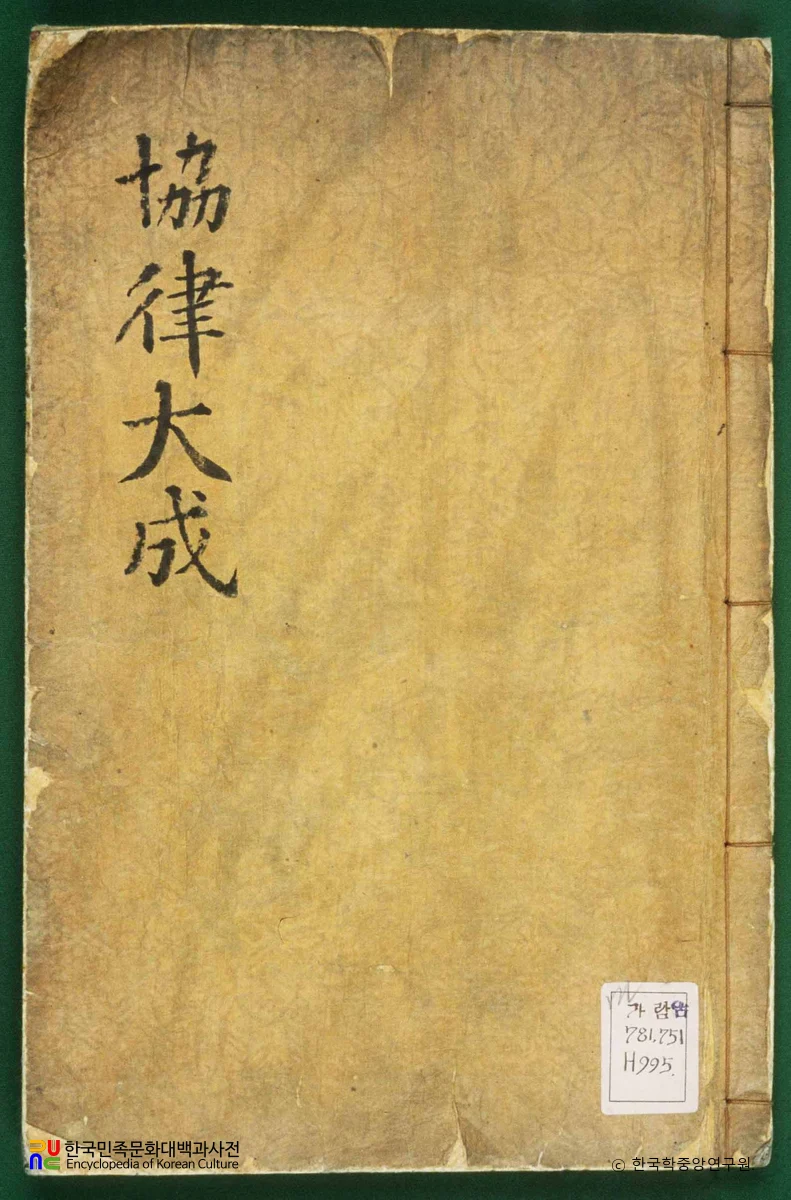 協律大成
가람
781.751
H995.
한국민족문화대백과사전
Encyclopedia of Korean Culture
© 한국학중앙연구원